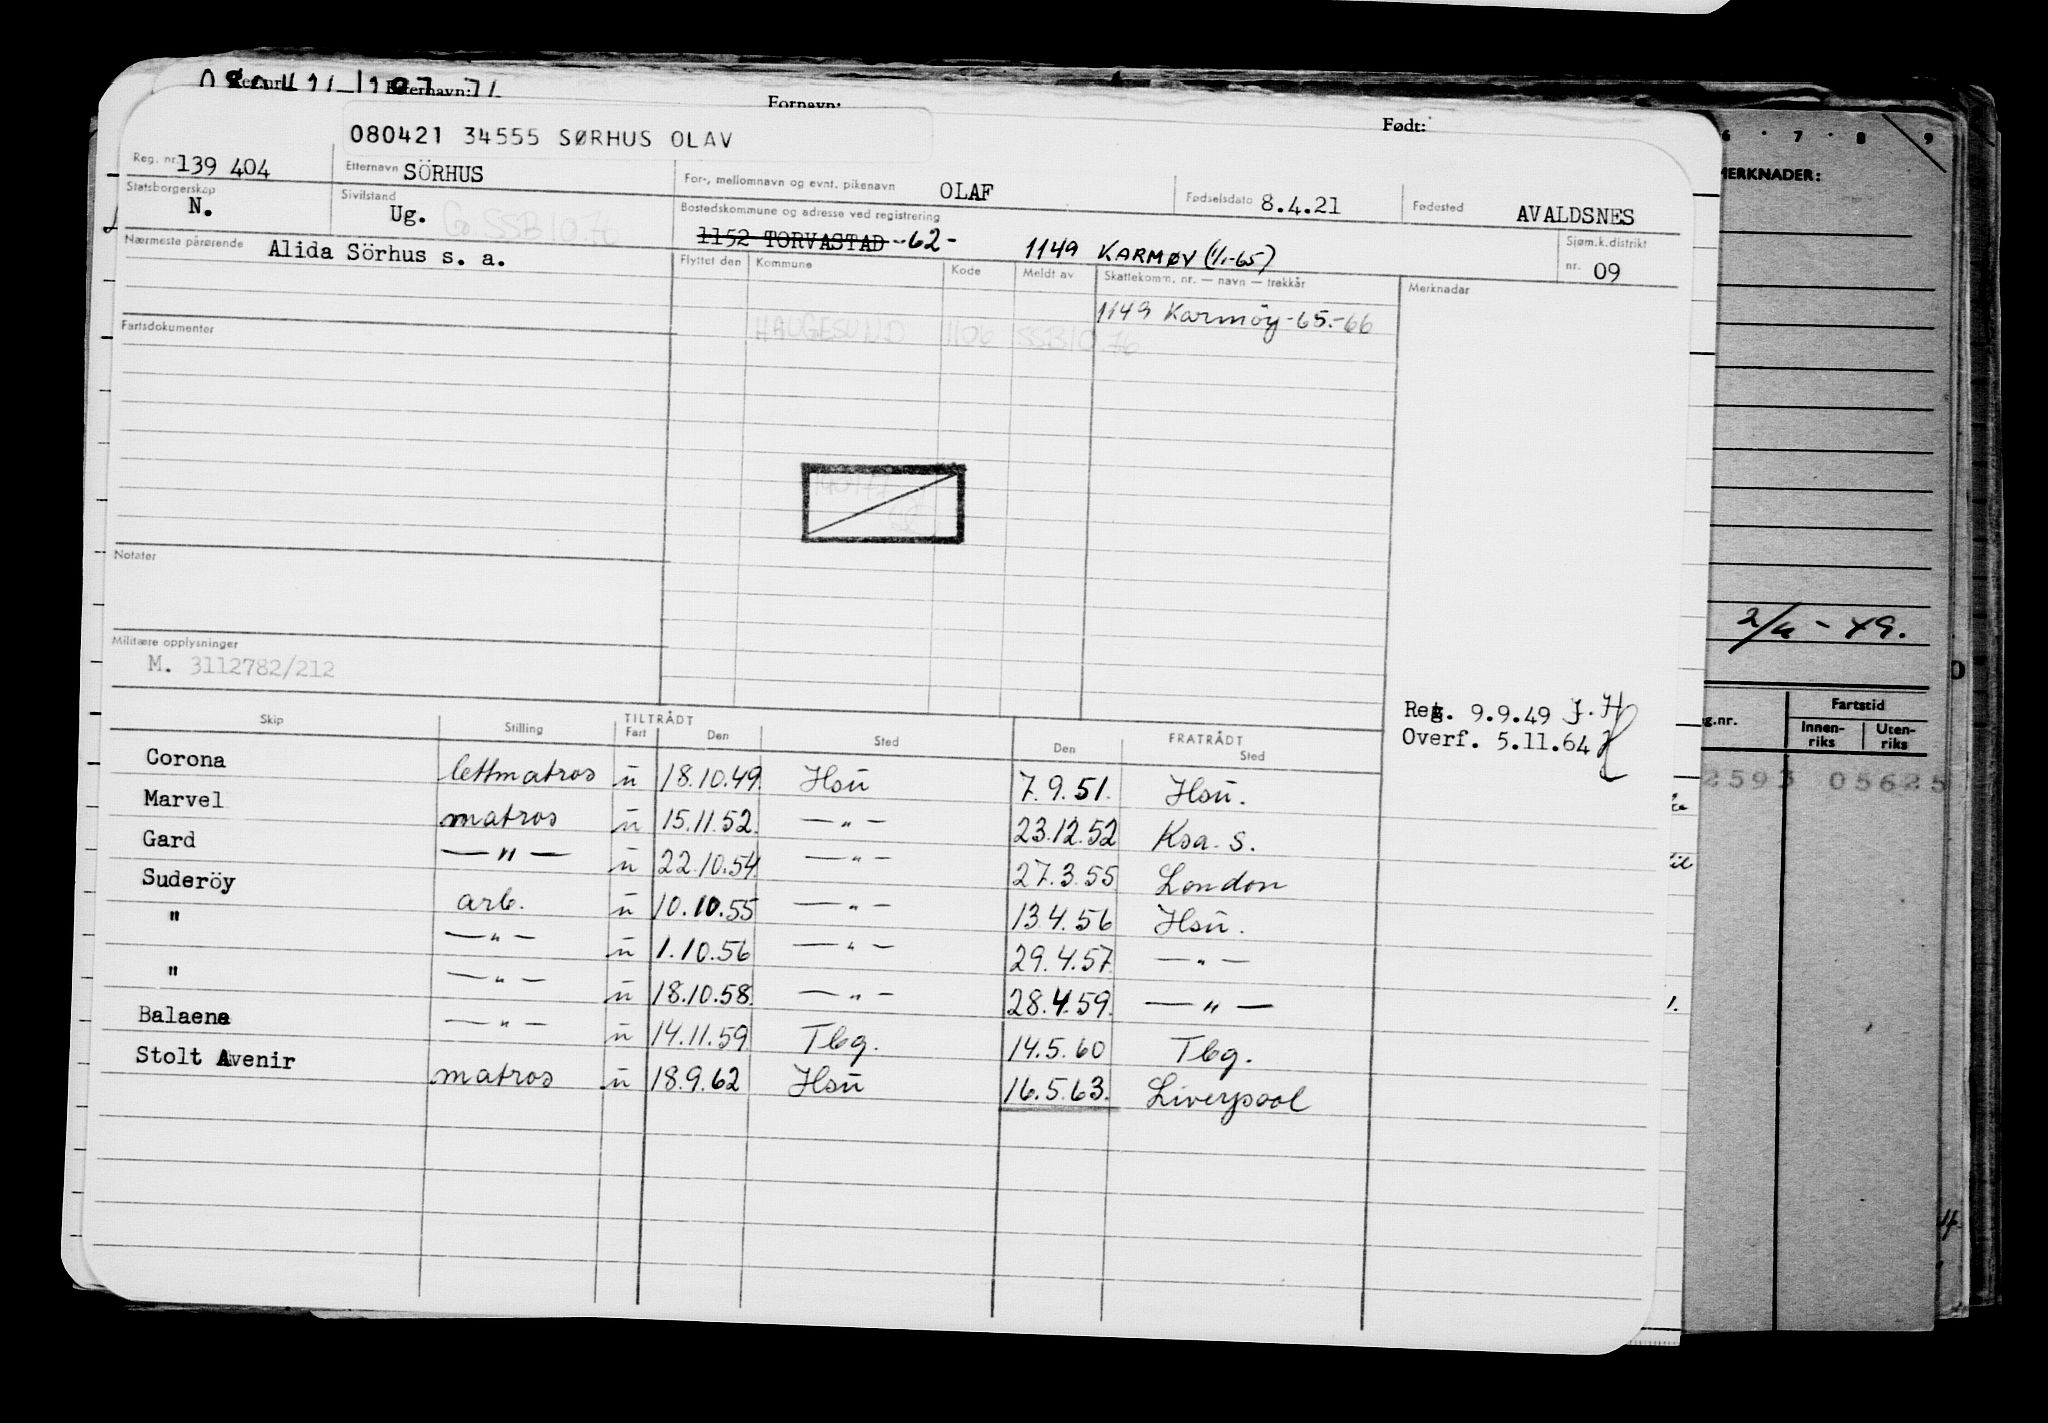 Fornavn:
Født:
6 7 8 9
MERKNADER:
080421 34555 SØRHUS OLAV
Reg. nr. 139 404 Etternavn SÖRHUS For-, mellomnavn og evnt. pikenavn OLAF Fødselsdato 8.4.21 Fødested AVALDSNES
Statsborgerskap N. Sivilstand Ug. G. SSB 10.76 Bostedskommune og adresse ved registrering 1152 TORVASTAD -62- 1149 KARMØY (1/1-65) Sjøm.k.distrikt nr. 09
Nærmeste pårørende Alida Sörhus s. a.
Flyttet den Kommune Kode Meldt av Skattekomm. nr. — navn — trekkår Merknader
1149 Karmöy -65.-66
HAUGESUND 1106 SSB 10.76
Fartsdokumenter
Notater
Militære opplysninger
M. 3112782/212
Reg. 9.9.49 J.H
Overf. 5.11.64
Skip Stilling TILTRÅDT Fart Den Sted FRATRÅDT Den Sted
Corona lettmatros u 18.10.49. Hsu 7.9.51. Hsu.
Marvel matros u 15.11.52. —"— 23.12.52 Ksa. S.
Gard —"— u 22.10.54 —"— 27.3.55 London
Suderöy arb. u 10.10.55 —"— 13.4.56 Hsu.
" —"— u 1.10.56 —"— 29.4.57 —"—
" —"— u 18.10.58. —"— 28.4.59. —"—
Balaena —"— u 14.11.59. Tbg. 14.5.60 Tbg.
Stolt Avenir matros u 18.9.62 Hsu 16.5.63. Liverpool
g.nr. Fartstid
Innenriks Utenriks
2593 05625